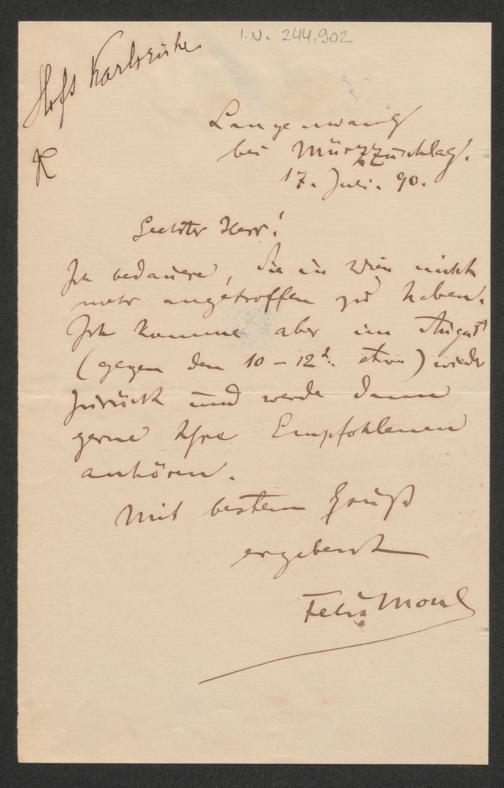 I.N. 244.902
Hofs Karlsruhe
K
Langenwang
bei Mürzzuschlag.
17. Juli. 90.
Geehrter Herr!
Ich bedauere, Sie in Wien nicht
mehr angetroffen zu haben.
Ich komme aber im August
(gegen den 10-12t. etwa) wieder
zurück und werde dann
gerne Ihre Empfohlenen
anhören.
Mit bestem Gruß
ergebenst
Felix Mottl